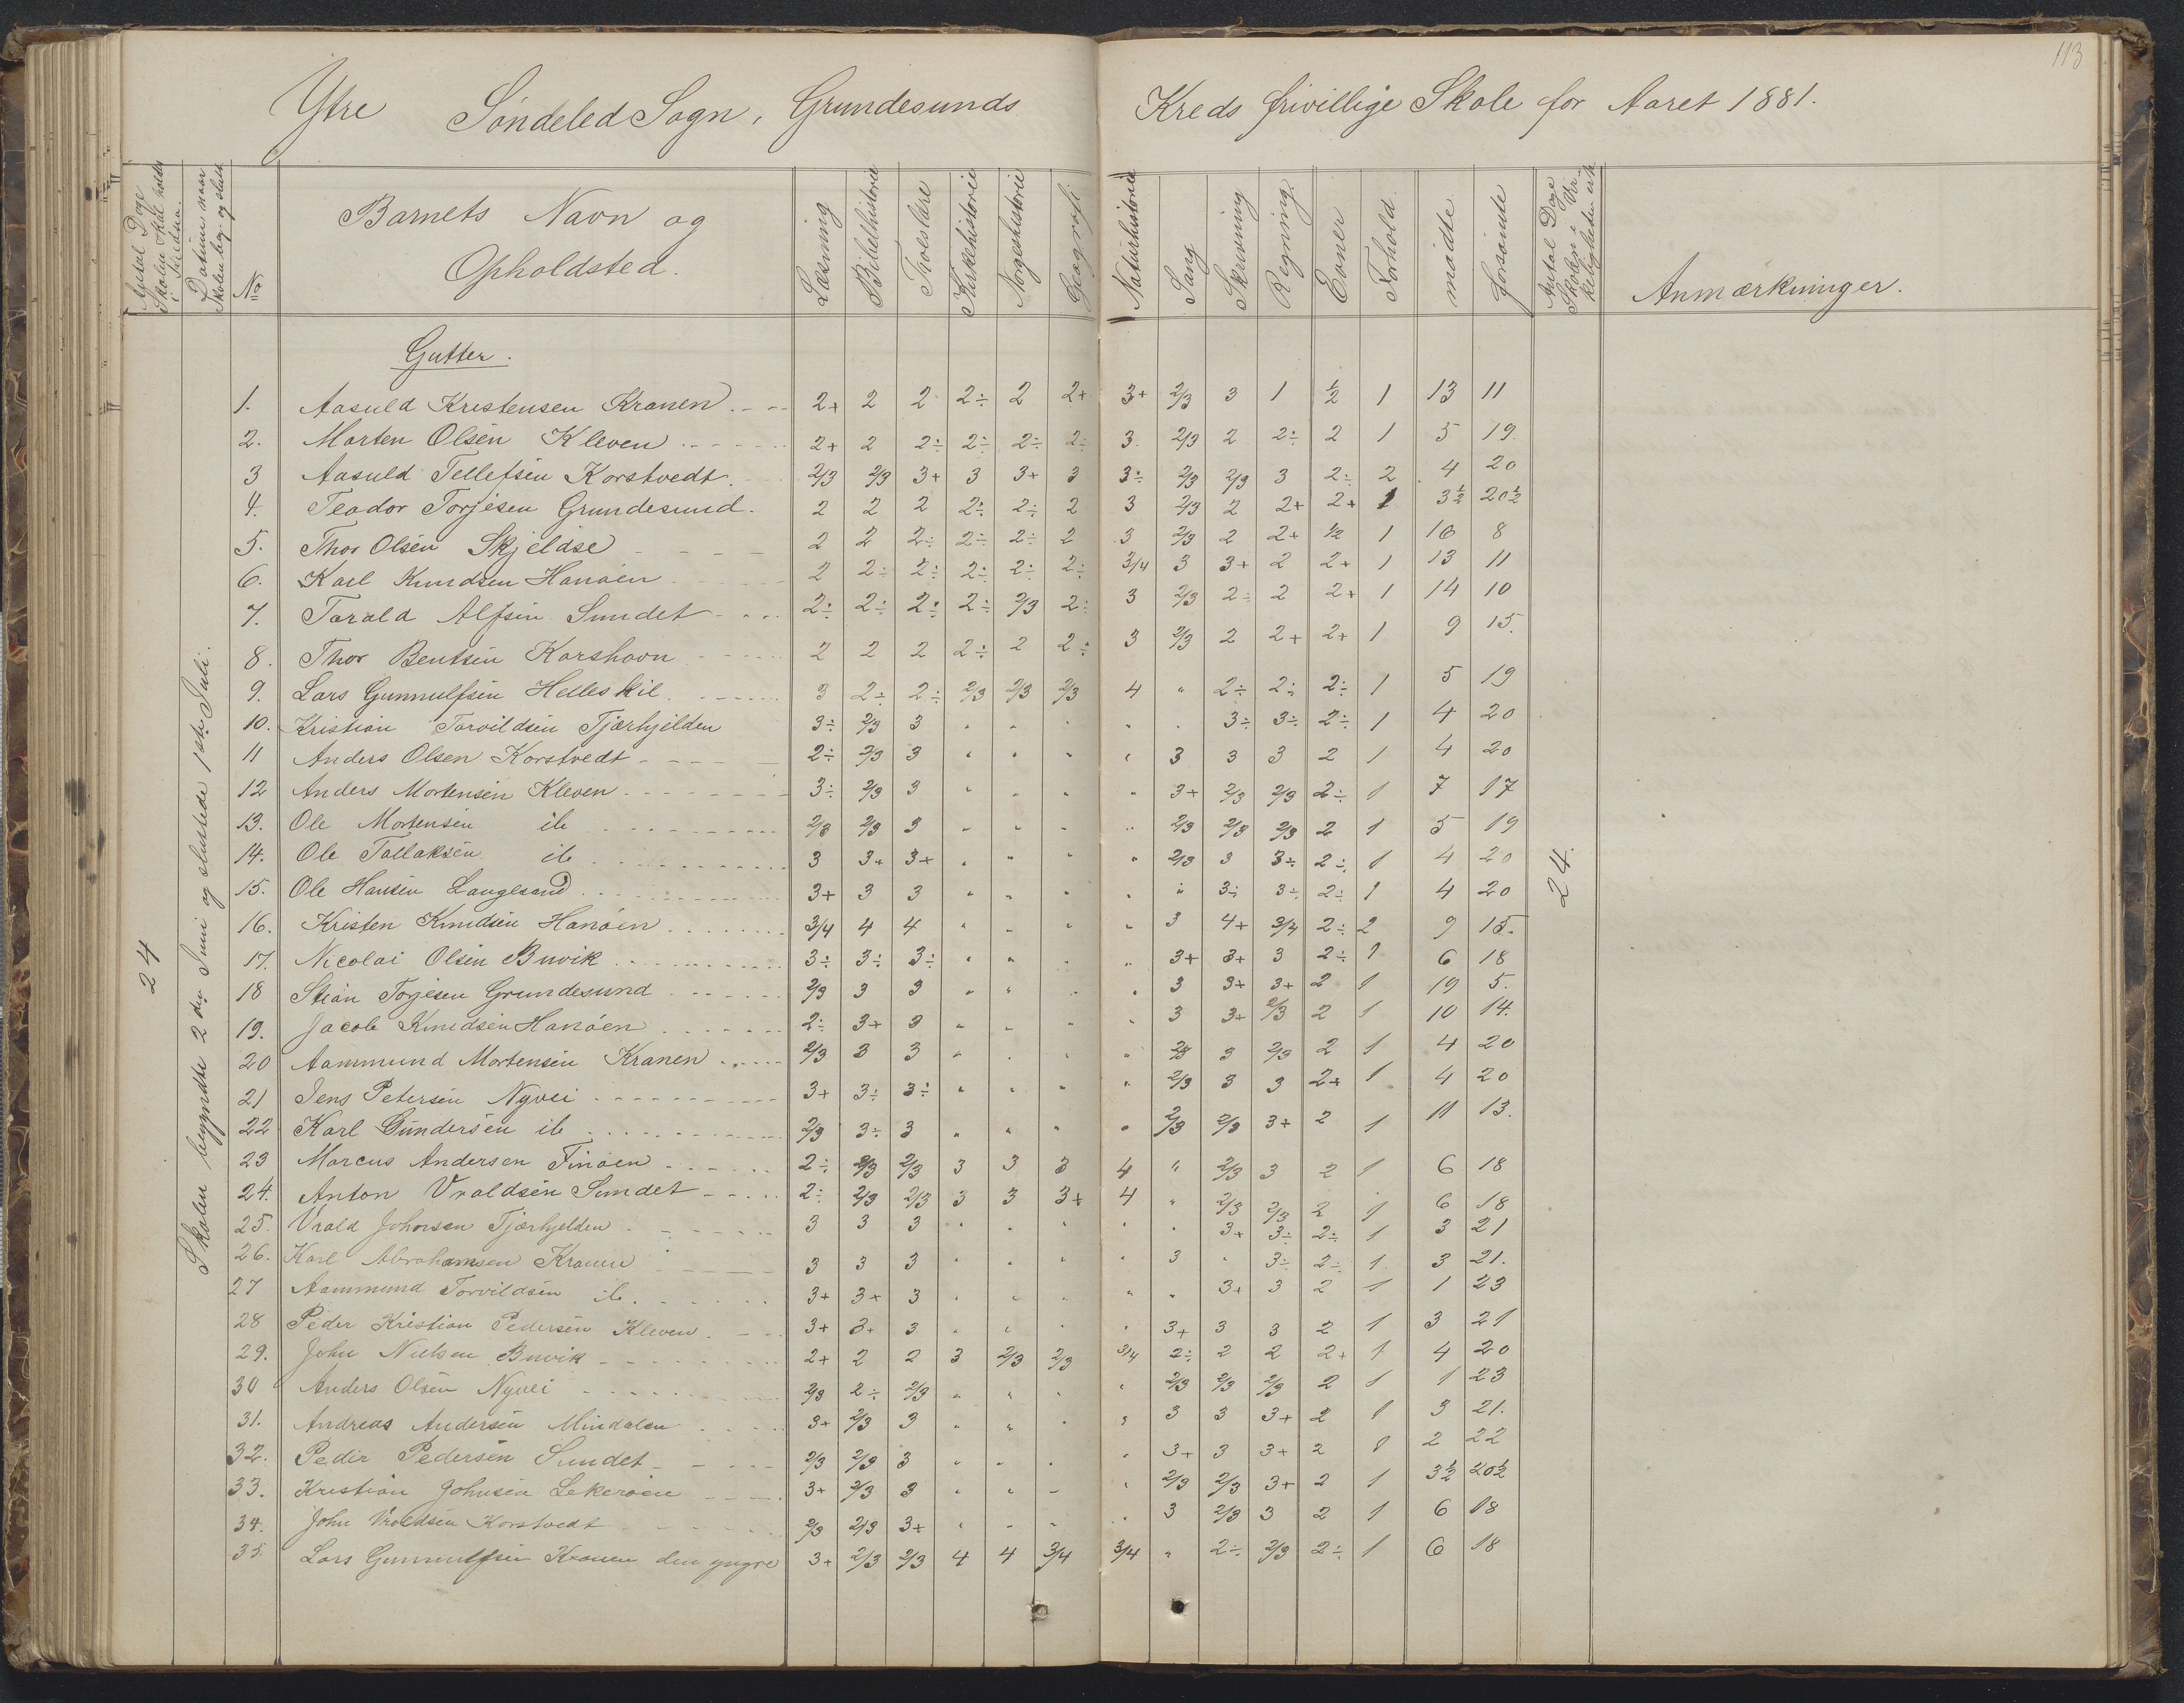 113
Ytre Søndeled Sogn, Grundesunds Kreds frivillige Skole for Aaret 1881.
Antal Dage Skolen skal holdes i Kredsen.
Datum naar Skolen beg. og slutt.
No
Barnets Navn og Opholdsted.
Læsning
Bibelhistorie
Troeslære
Kirkehistorie
Norgeshistorie
Geografi
Naturhistorie
Sang
Skrivning
Regning
Evner
Forhold.
mødte
forsømte
Antal Dage Skolen i Virkeligheden
Anmærkninger.
24
Skolen begyndte 2den Juni og sluttede 1ste Juli.
24.
Gutter.
1. Aasuld Kristensen Kranen 2+ 2 2 2÷ 2 2+ 3+ 2/3 3 1 ½ 1 13 11
2. Morten Olsen Kleven 2+ 2 2÷ 2÷ 2÷ 2÷ 3. 2/3 2 2÷ 2 1 5 19.
3 Aasuld Tellefsen Korstvedt. 2/3 2/3 3+ 3 3+ 3 3÷ 2/3 2/3 3 2÷ 2 4 20
4. Teodor Torjesen Grundesund. 2 2 2 2÷ 2÷ 2 3 2/3 2 2+ 2+ 1 3½ 20½
5. Thor Olsen Skjeldsø 2 2 2÷ 2÷ 2÷ 2 3 2/3 2 2+ ½ 1 16 8
6. Karl Knudsen Hanøen 2 2÷ 2÷ 2÷ 2÷ 2÷ 3/4 3 3+ 2 2+ 1 13 11
7. Tarald Alfsen Sundet 2÷ 2÷ 2÷ 2÷ 2/3 2÷ 3 2/3 2÷ 2 2+ 1 14 10
8. Thor Bentsen Korshavn 2 2 2 2÷ 2 2÷ 3 2/3 2 2+ 2+ 1 9 15.
9. Lars Gunnulfsen Helleskil 3 2÷ 2÷ 2/3 2/3 2/3 4 " 2÷ 2÷ 2÷ 1 5 19
10. Kristian Torvildsen Tjærhjelden 3÷ 2/3 3 " " " " " 3÷ 3÷ 2÷ 1 4 20
11 Anders Olsen Korstvedt 2÷ 2/3 3 " " " " 3 3 3 2 1 4 20
12 Anders Mortensen Kleven 3÷ 2/3 3 " " " " 3+ 2/3 2/3 2÷ 1 7 17
13. Ole Mortensen ib 2/3 2/3 3 " " " " 2/3 2/3 2/3 2 1 5 19
14. Ole Tallaksen ib 3 3+ 3+ " " " " 2/3 3 3÷ 2÷ 1 4 20
15. Ole Hansen Langesand 3+ 3 3 " " " " " 3÷ 3÷ 2÷ 1 4 20
16. Kristen Knudsen Hanøen 3/4 4 4 " " " " 3 4+ 3/4 2÷ 2 9 15.
17. Nicolai Olsen Buvik 3÷ 3÷ 3÷ " " " " 3+ 3+ 3 2÷ 1 6 18
18 Stian Torjesen Grundesund 2/3 3 3 " " " " 3 3+ 3+ 2 1 19 5.
19. Jacob Knudsen Hanøen 2÷ 3+ 3 " " " " 3 3+ 2/3 2 1 10 14.
20 Aammund Mortensen Kranen 2/3 3 3 " " " " 2/3 3 2/3 2 1 4 20
21 Jens Petersen Nyvei 3+ 3÷ 3÷ " " " " 2/3 3 3 2+ 1 4 20
22 Karl Gundersen ib 2/3 3÷ 3 " " " " 2/3 2/3 3+ 2 1 11 13.
23 Marcus Andersen Finøen 2÷ 2/3 2/3 3 3 3 4 " 2/3 3 2 1 6 18
24. Anton Vraldsen Sundet 2÷ 2/3 2/3 3 3 3+ 4 " 2/3 2/3 2 1 6 18
25. Vrald Johnsen Tjærhjelden 3 3 3 " " " " " 3+ 3÷ 2÷ 1 3 21
26. Karl Abrahamsen Kranen 3 3 3 " " " " 3 " 3÷ 2÷ 1. 3 21.
27 Aammund Torvildsen ib. 3+ 3+ 3 " " " " " 3+ 3 2 1 1 23
28 Peder Kristian Pedersen Kleven 3+ 3+ 3 " " " " 3+ 3 3 2 1 3 21
29. John Nielsen Buvik 2+ 2 2 3 2/3 2/3 3/4 2÷ 2 2 2+ 1 4 20
30 Anders Olsen Nyvei 2/3 2÷ 2/3 " " " " 2/3 2/3 2/3 2 1 1 23
31. Andreas Andersen Mindalen 3+ 2/3 3 " " " " 3 3 3+ 2 1 3 21.
32. Peder Pedersen Sundet 2/3 2/3 3 " " " " 3+ 3 3+ 2 1 2 22
33. Kristian Johnsen 3+ 2/3 3 " " " " 2/3 2/3 3+ 2 1 3½ 20½
34. John Vraldsen Korstvedt 2/3 2/3 3+ " " " " 3 2/3 3 2 1 6 18
35. Lars Gunnulfsen Kranen den yngre 3+ 2/3 2/3 4 4 3/4 3/4 " 2÷ 2/3 2÷ 1 6 18